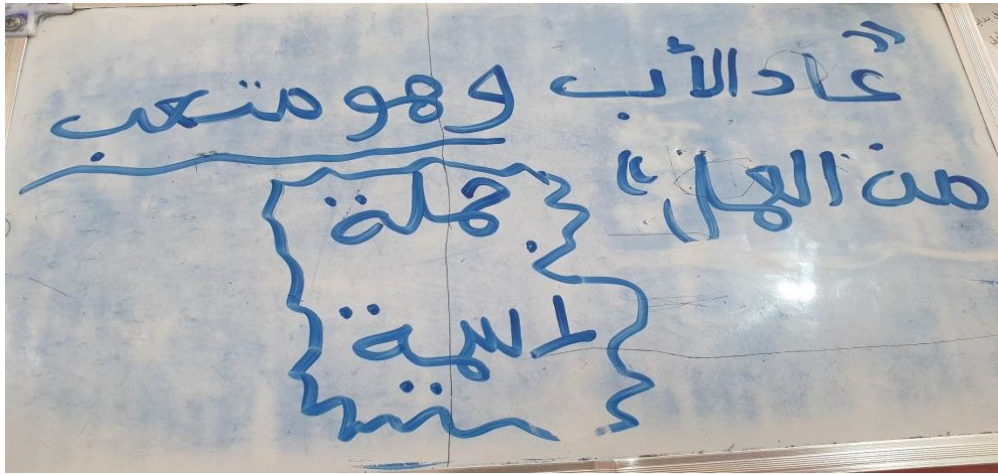 "عاد الأب وهو متعب
من العمل"
جملة
اسمية